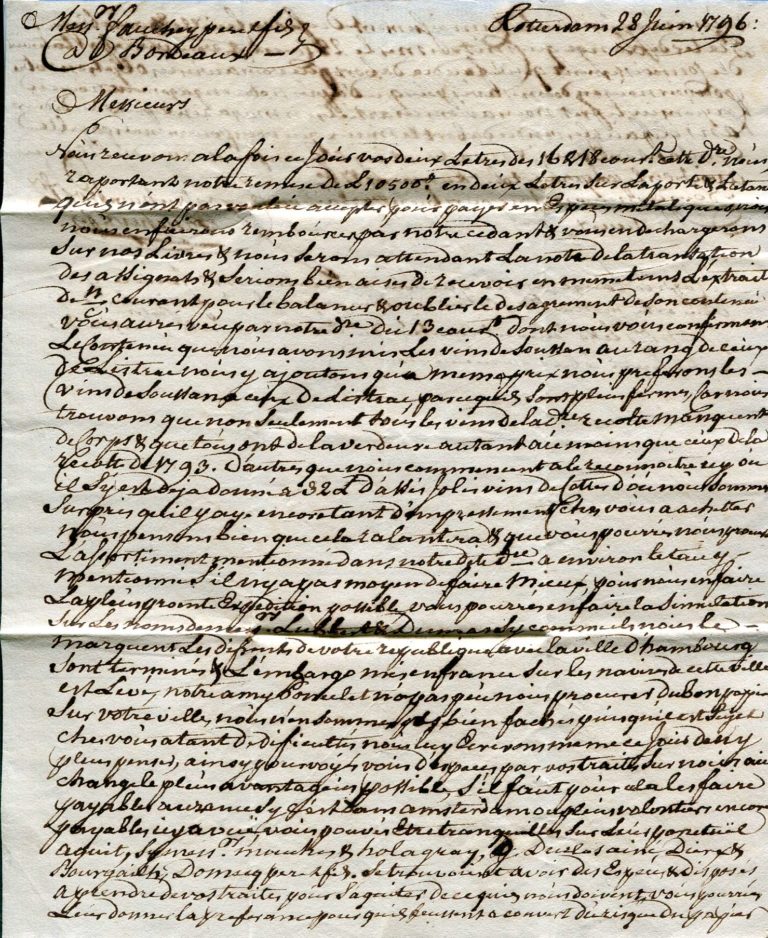 Mess.rs Fauchey pere & fils
a Bordeaux —
Rotterdam 28 Juin 1796:
Messieurs
Nous recevons a la fois ce Jour vos deux Letres des 16 & 18 cour.t cette d.re nous
raportant notre remise de L 10500.# en deux Letres sur Laporte &
qui n'ont pas voulu accepter pour payer en Especes metalique, nous
nous en fairons rembourcer par notre cedant & vous en dechargerons
sur nos Livres & nous serons attendant La note de la transation
des assignats & serions bien aises de recevoir en meme tems L'extrait
de n/ courant pour le balancer & oublier le desagrement de son contenu
vous aurés veu par notre d.re du 13 cour.t dont nous vous confirmons
Le Contenu que nous avons mis Les vins de Soussan au rang de ceux
de Listrac nous y ajoutons qu'a meme prix nous preferons les —
vins de Soussan a ceux de Listrac parce qu'ils sont plus fermes, Car nous
trouvons que non seulement tous les vins de la d.re recolte manquent
de Corps & que tous ont de la verdeur autant au moins que ceux de la
recolte de 1793. d'autres que nous commencent a le reconnoitre icy ou
il s'y est deja donné a 32 L d'assés Jolis vins de Cottes d'ou nous sommes
surpris qu'il y aye encore tant d'empressement Chez vous a achetter
nous pensons bien que cela ralantira & que vous pourrés nous
L'assortiment mentionné dans notre dite d.re a environ le taux y
mentionné s'il n'y a pas moyen de faire Mieux, pour nous en faire
La plus pronte Expedition possible, vous pourrés en faire la Simulation
sur Les noms de mess.rs Lubbert & Dumas sy comme ils nous le —
marquent Les diferents de votre republique avec la ville d'hambourg
sont terminés & L'embargo mis en france sur les navires de cette ville
est Levé, notre amy n'a pas peu nous procurer du bon papier
sur votre ville, nous n'en sommes pas bien fachés puis qu'il est sujet
chez vous a tant de dificultés, nous luy Ecrivons meme ce Jour de n'y
plus penser, ainsy pourvoyés vous d'especes par vos traites sur nous au
change le plus avantageux possible, s'il faut pour cela les faire
payables a sy C'est dans amsterdam ou plus volontiers encore
payables icy a vüe, vous pouvés Etre tranquilles sur Leur ponctüel
aquit, sy mess.rs & holagray, Duclesainé, &
Bourgailh, Domecq pere & fils. se trouvoient avoir des Especes & disposés
a prendre de vos traites pour s'aquiter de ce qu'ils nous doivent, vous pourriés
Leur donner la preferance pourquils fussent a couvert du risque du papier